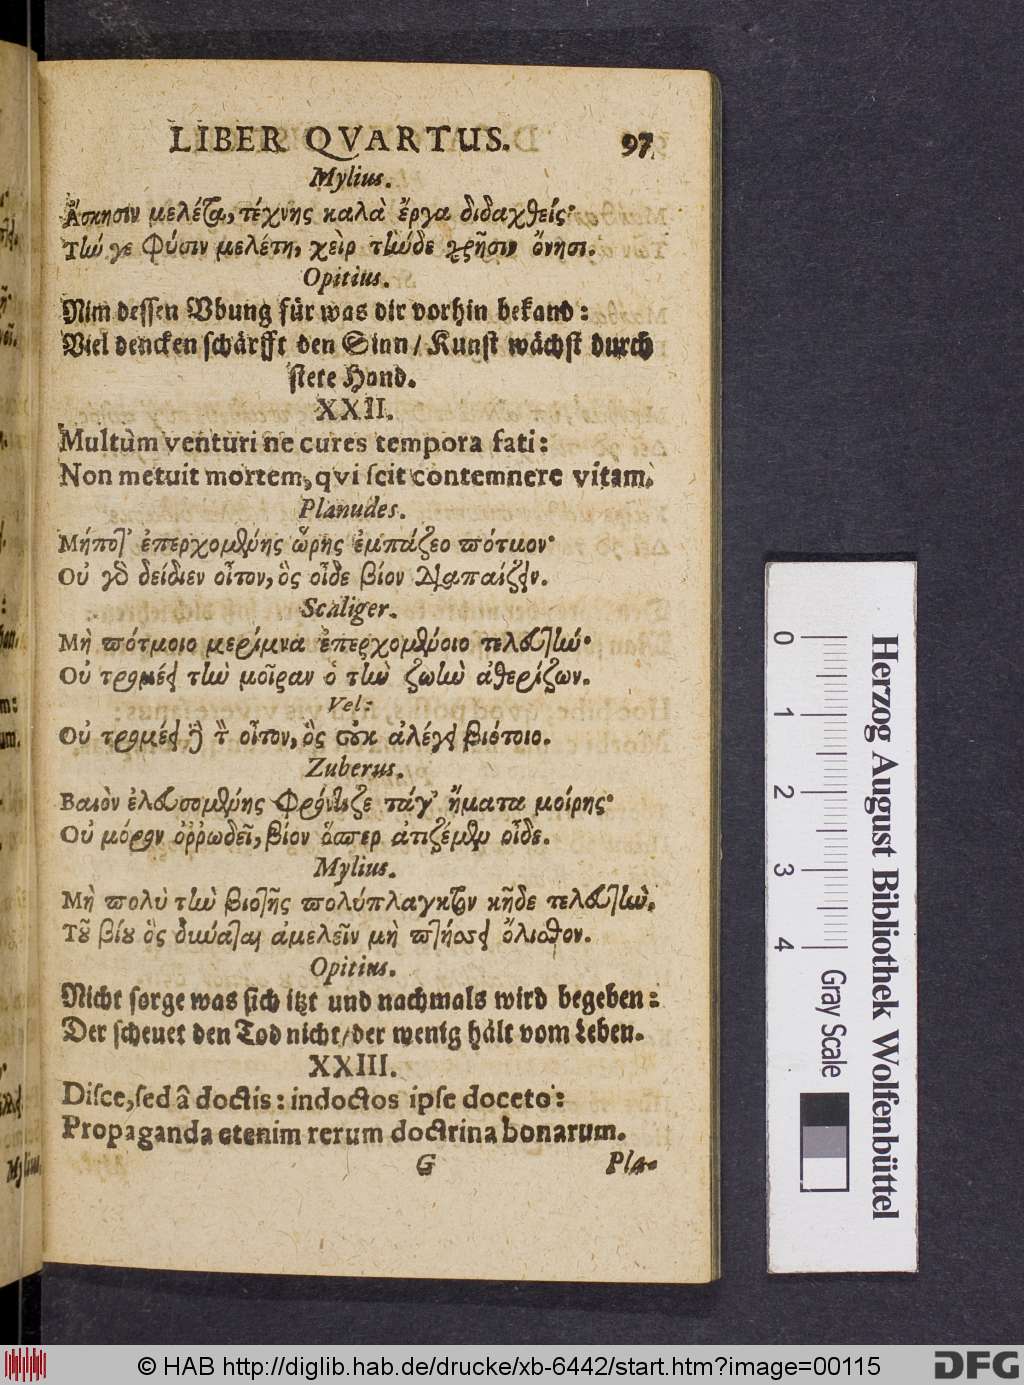 LIBER QVARTUS. 97
Mylius.
Ἄσκησιν μελέτα, τέχνης καλὰ ἔργα διδαχθείς·
Τὴν γε φύσιν μελέτη, χεὶρ τὴνδε χρῆσιν ὄνησι.
Opitius.
Nim dessen Vbung für was dir vorhin bekand:
Viel dencken schärfft den Sinn / Kunst wächst durch
stete Hand.
XXII.
Multùm venturi ne cures tempora fati:
Non metuit mortem, qvi ſcit contemnere vitam.
Planudes.
Μήποτ' ἐπερχομένης ὥρης ἐμπάζεο πότμον·
Οὐ γὰρ δείδιεν οἶτον, ὃς οἶδε βίον διαπαίζειν.
Scaliger.
Μὴ πότμοιο μερίμνα ἐπερχομένοιο τελευτὴν·
Οὐ τρομέει τὴν μοῖραν ὁ τὴν ζωὴν ἀθερίζων.
Vel:
Οὐ τρομέει τὸν οἶτον, ὃς οὐκ ἀλέγει βιότοιο.
Zuberus.
Βαιὸν ἐλευσομένης φρόντιζε τάγ' ἤματα μοίρης·
Οὐ μόρον ὀῤῥωδεῖ, βίον ὅσπερ ἀτιζέμεν οἶδε.
Mylius.
Μὴ πολὺ τὴν βιοτῆς πολύπλαγκτον κῆδε τελευτὴν.
Τοῦ βίου ὃς δύναται ἀμελεῖν μὴ πτήσσει ὄλισθον.
Opitius.
Nicht sorge was sich itzt und nachmals wird begeben:
Der scheuet den Tod nicht/der wenig hält vom Leben.
XXIII.
Diſce, ſed â doctis: indoctos ipſe doceto:
Propaganda etenim rerum doctrina bonarum.
G Pla-
0 1 2 3 4
Gray Scale
Herzog August Bibliothek Wolfenbüttel
© HAB http://diglib.hab.de/drucke/xb-6442/start.htm?image=00115
DFG